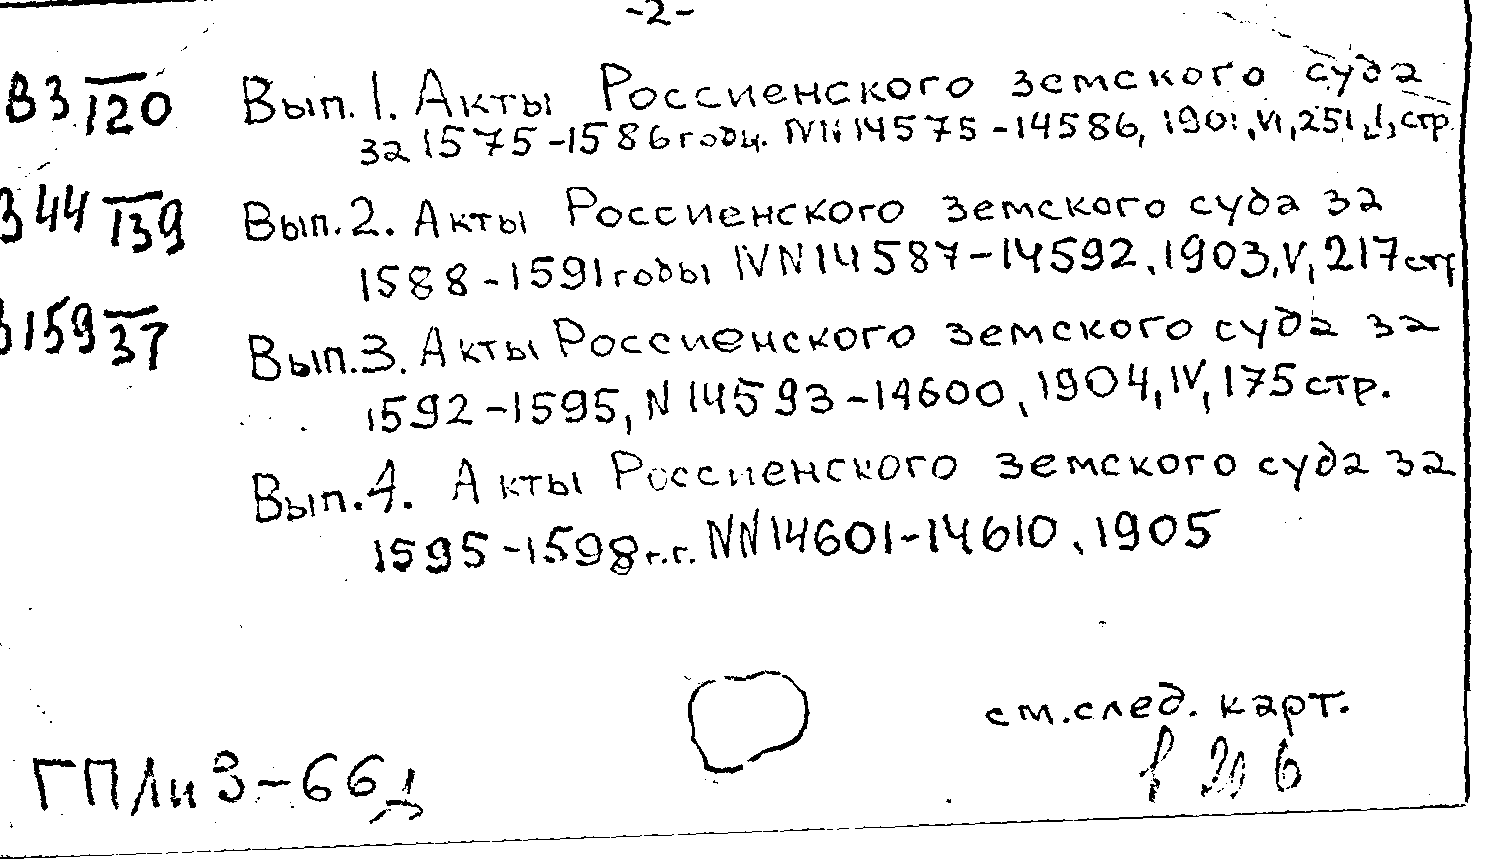 -2-
В3 120 Вып.1. Акты Россиенского земского суда
за 1575-1586 годы. NN 14575-14586, 1901, VI, 251, стр.
44 139 Вып.2. Акты Россиенского земского суда за
1588-1591 годы NN 14587-14592, 1903, V, 217 стр
159 37 Вып.3. Акты Россиенского земского суда за
1592-1595, N 14593-14600, 1904, IV, 175 стр.
Вып.4. Акты Россиенского земского суда за
1595-1598 г.г. NN 14601-14610, 1905
см. след. карт.
ГПЛи3-66